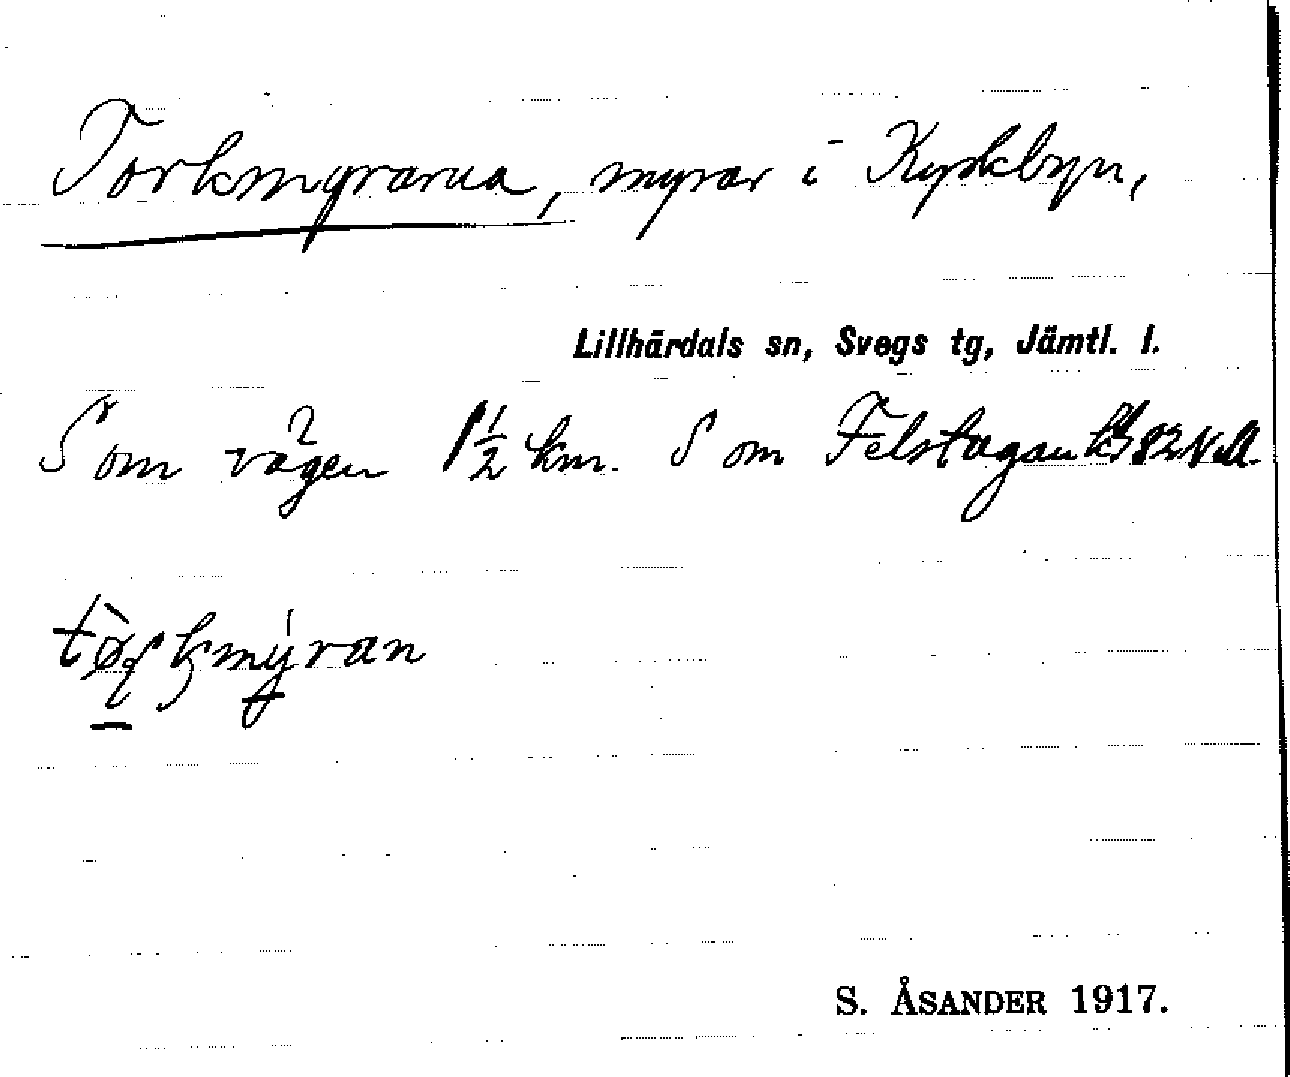 Torkmyrarna, myrar i Kyrkbyn,
Lillhärdals sn, Svegs tg, Jämtl. l.
S om vägen 1½ km. S om Felstagan 82 NV.
myran
S. ÅSANDER 1917.